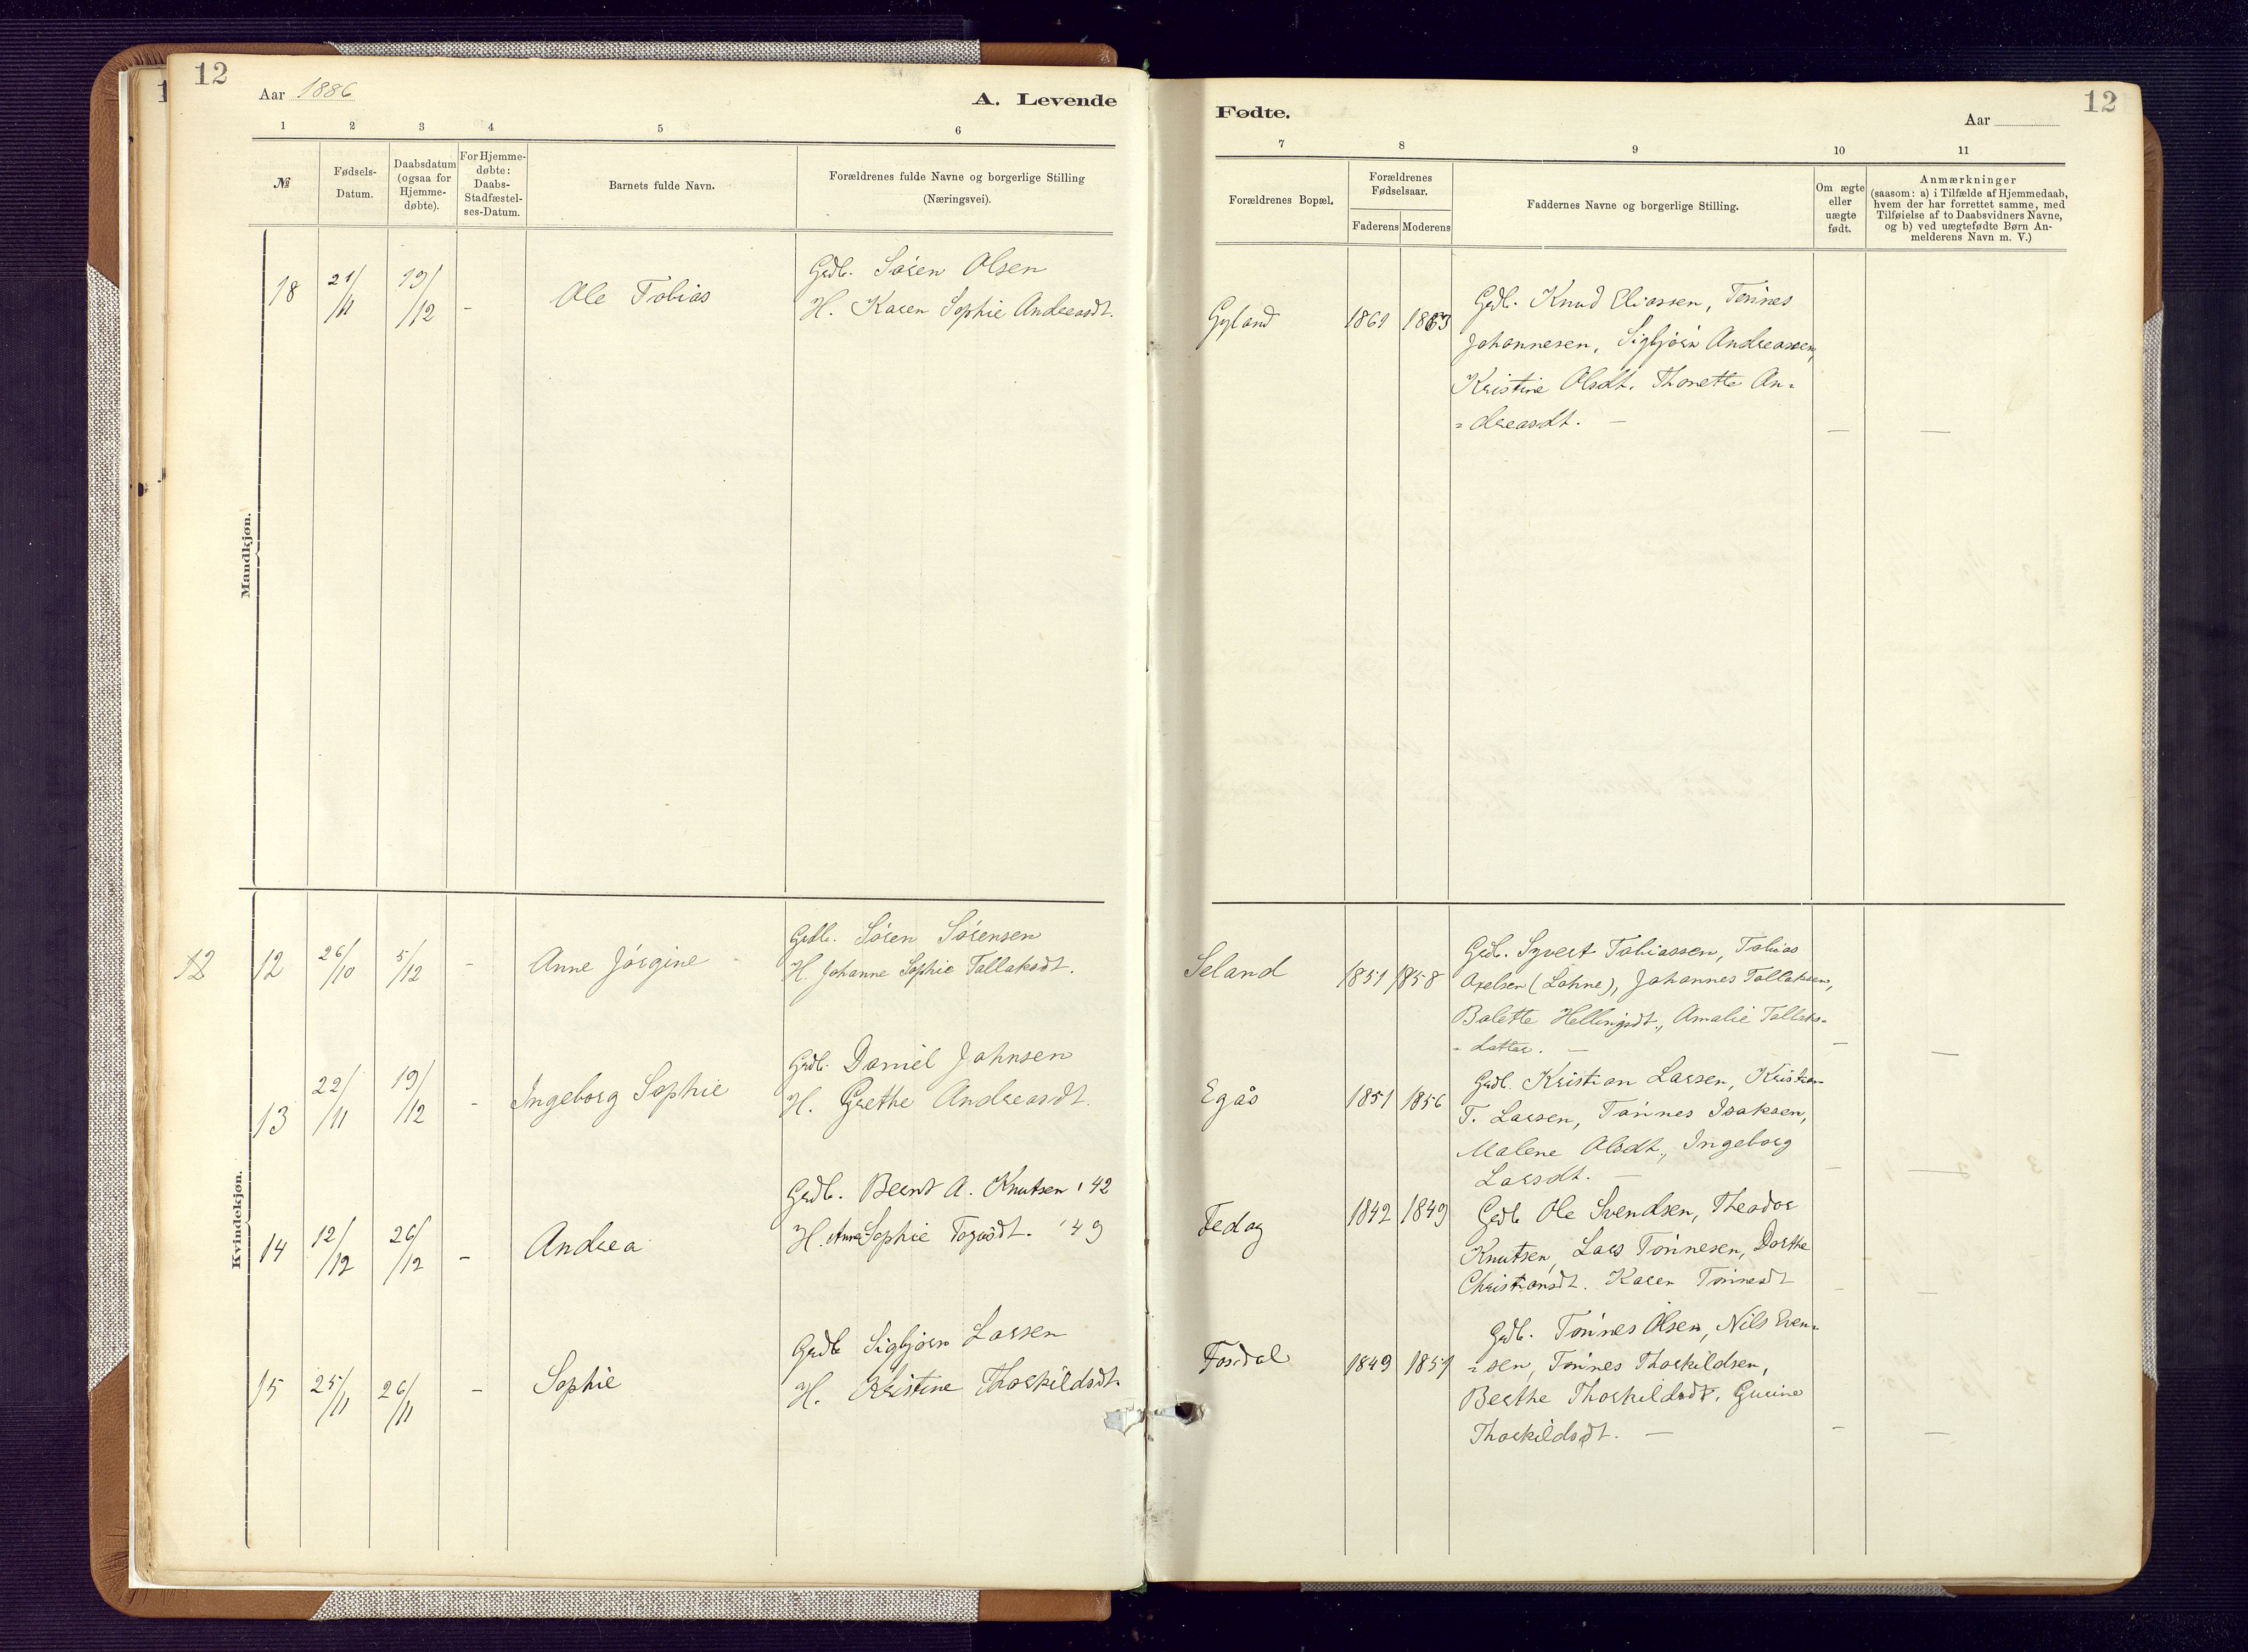 12
Aar 1886
A. Levende
1 2 3 4 5 6
№
Fødsels-
Datum.
Daabsdatum
(ogsaa for
Hjemme-
døbte).
For Hjemme-
døbte:
Daabs-
Stadfæstel-
ses-Datum.
Barnets fulde Navn.
Forældrenes fulde Navne og borgerlige Stilling
(Næringsvei).
Mandkjøn.
18 21/11 19/12 - Ole Tobias
Grdb. Søren Olsen
H. Karen Sophie Andreasdt.
Kvindekjøn.
12 12 26/10 5/12 - Anne Jørgine
Grdb. Søren Sørensen
H. Johanne Sophie Tallaksdt.
13 22/11 19/12 - Ingeborg Sophie
Grdb. Daniel Johnsen
H. Grethe Andreasdt.
14 12/12 26/12 - Andrea
Grdb. Bernt A. Knutsen '42
H. Anne Sophie Togesdt. '49
15 25/11 26/11 - Sophie
Grdb Sigbjørn Larsen
H. Kristine Thorkildsdt.
Fødte.
12
Aar
7 8 9 10 11
Forældrenes Bopæl.
Forældrenes
Fødselsaar.
Faderens Moderens
Faddernes Navne og borgerlige Stilling.
Om ægte
eller
uægte
født.
Anmærkninger
(saasom: a) i Tilfælde af Hjemmedaab,
hvem der har forrettet samme, med
Tilføielse af to Daabsvidners Navne,
og b) ved uægtefødte Børn An-
melderens Navn m. V.)
Gyland 1861 1863
Grdb. Knud Eliassen, Tønnes
Johannesen, Sigbjørn Andreassen,
Kristine Olsdt. Thonette An-
=dreasdt. —
Seland 1851 1858
Grdb. Syvert Tobiassen, Tobias
Axelsen (Lohne), Johannes Tallaksen,
Bolette Hellingsdt., Amalie Tallaks-
=datter. —
Egås 1851 1856
Grdb. Kristian Larsen, Kristian
T. Larsen, Tønnes Isaksen,
Malene Olsdt., Ingeborg
Larsdt. —
Fedog 1842 1849
Grdb Ole Svendsen, Theodor
Knutsen, Lars Tønnesen, Dorthe
Christiansdt. Karen Tønnesdt
Fosdal 1849 1851
Grdb. Tønnes Olsen, Nils Even-
=sen, Tønnes Thorkildsen,
Berthe Thorkildsdt. Gurine
Thorkildsdt. —